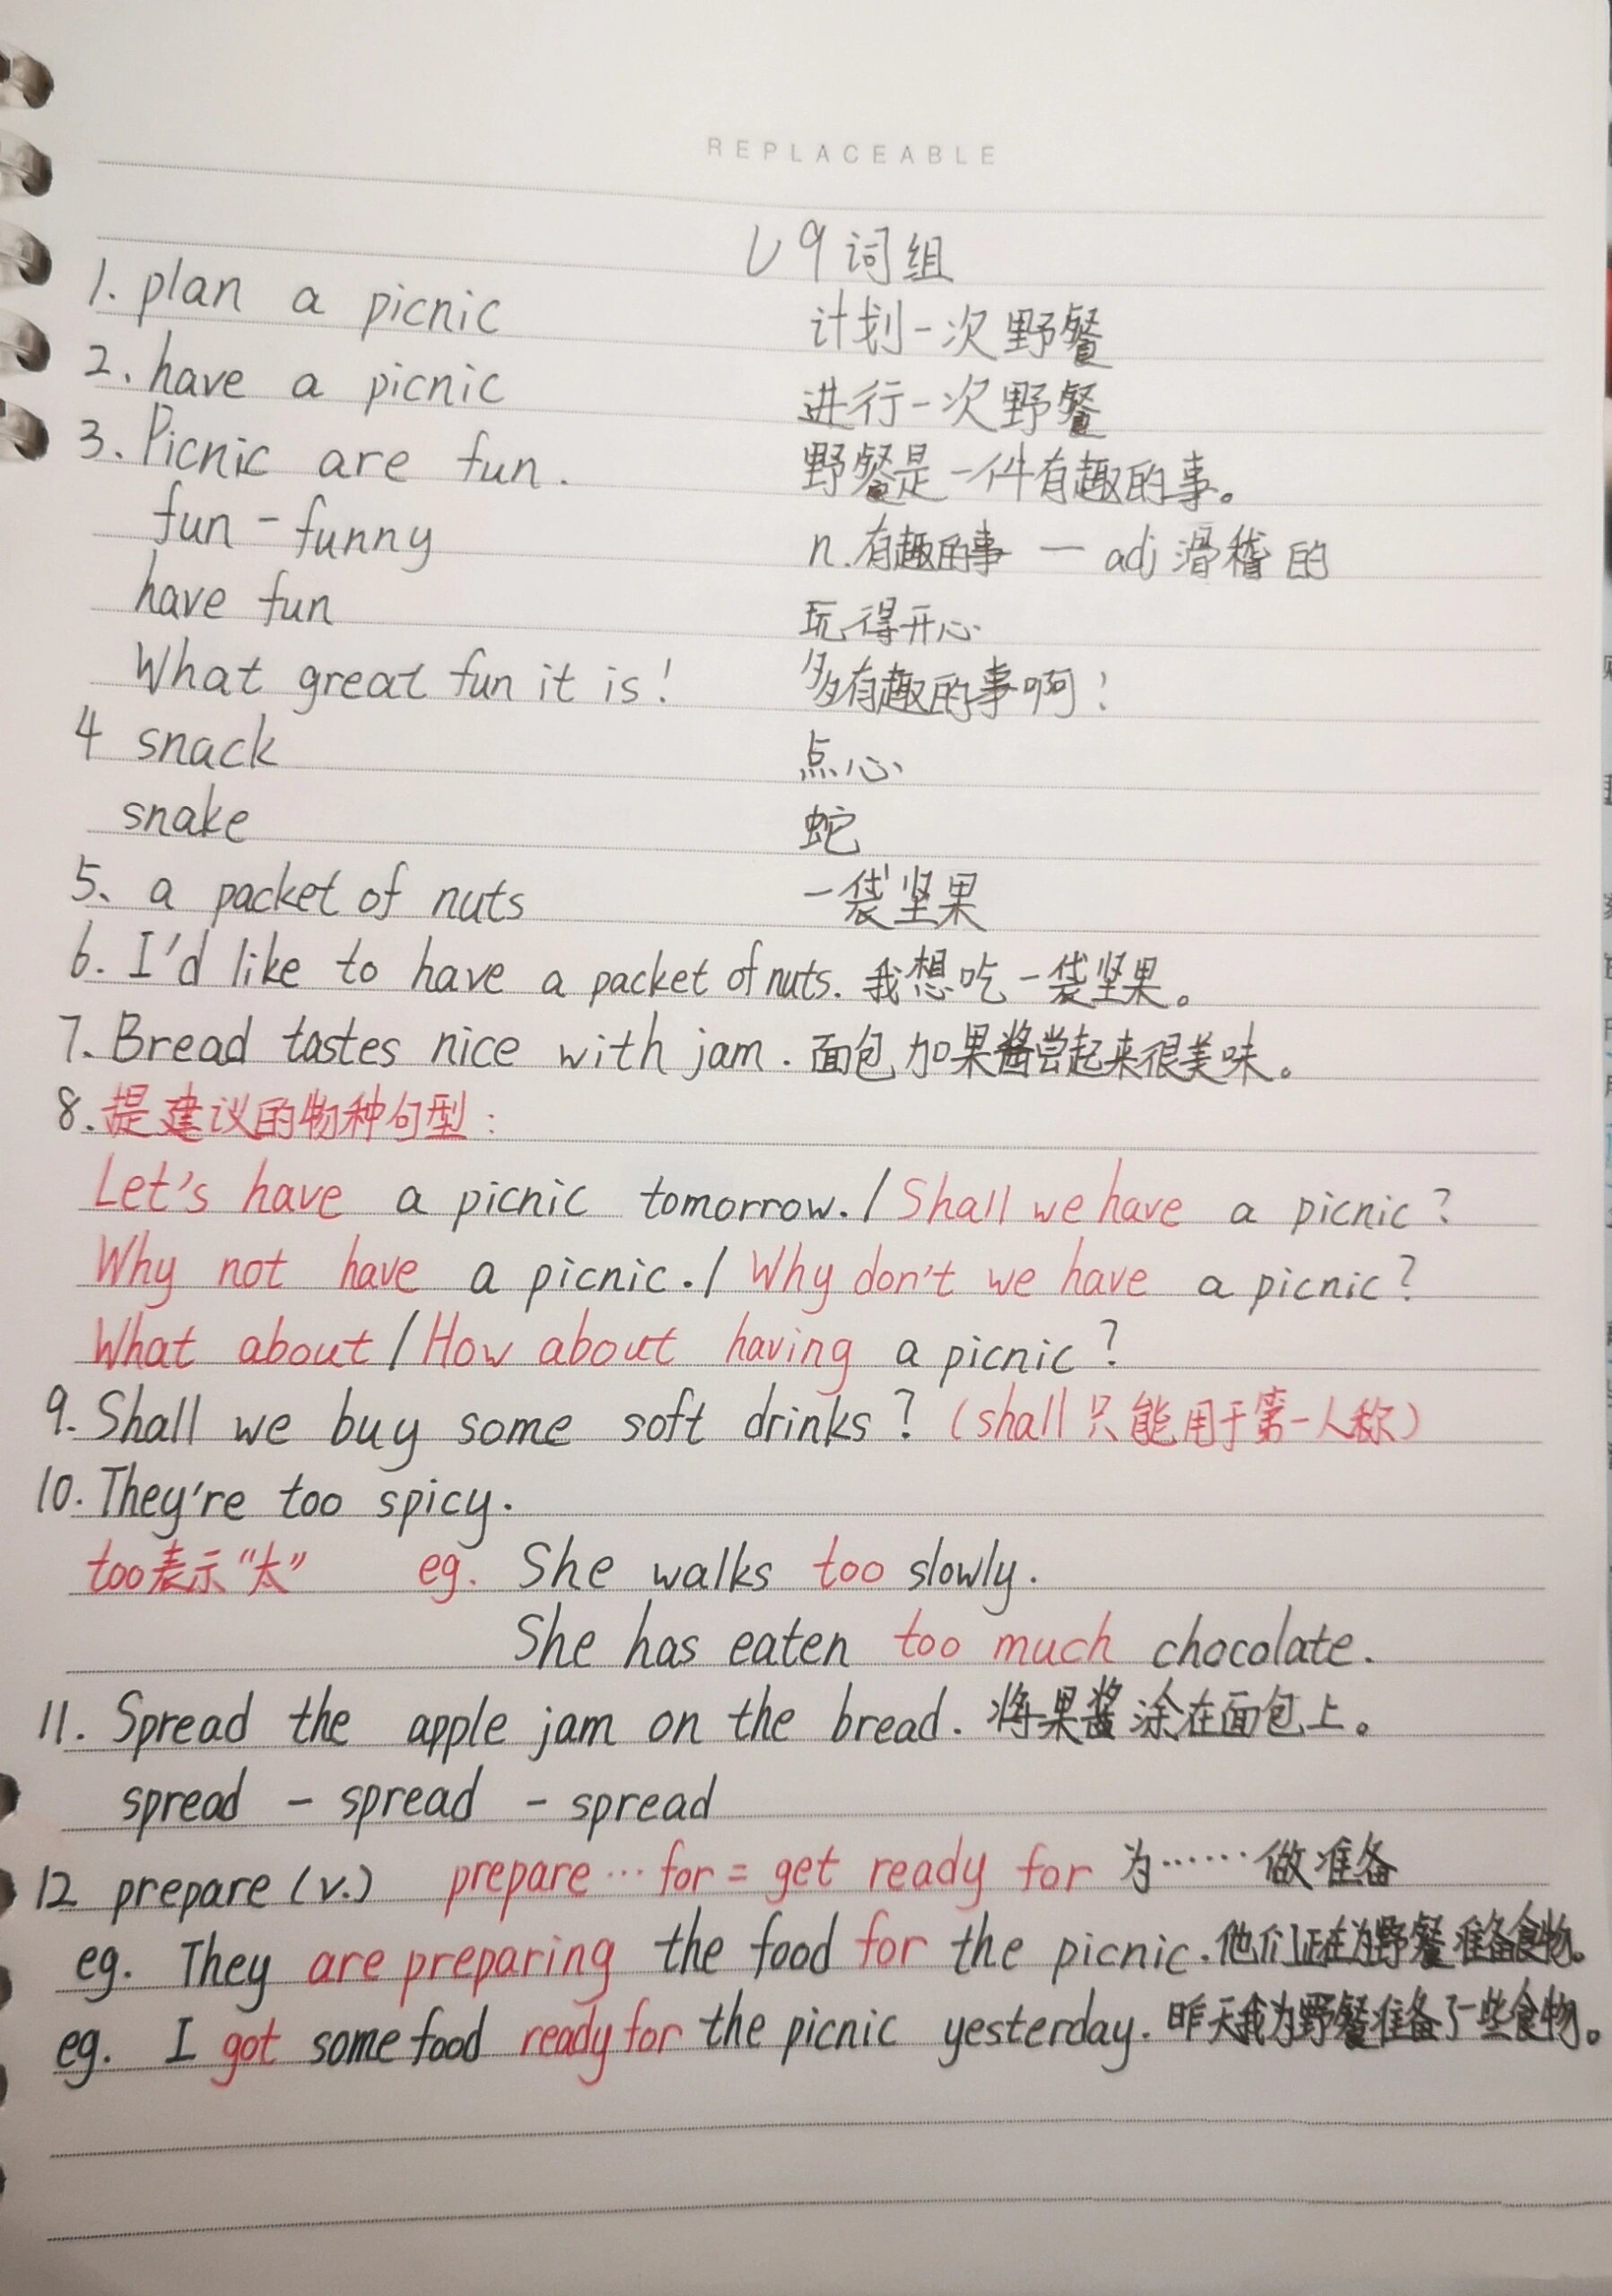 REPLACEABLE
U9词组
1. plan a picnic 计划一次野餐
2. have a picnic 进行一次野餐
3. Picnic are fun. 野餐是一件有趣的事。
fun - funny n.有趣的事 — adj 滑稽的
have fun 玩得开心
What great fun it is! 多有趣的事啊!
4 snack 点心
snake 蛇
5、a packet of nuts 一袋坚果
6. I'd like to have a packet of nuts. 我想吃一袋坚果。
7. Bread tastes nice with jam. 面包加果酱尝起来很美味。
8.提建议的物种句型:
Let's have a picnic tomorrow. / Shall we have a picnic?
Why not have a picnic. / Why don't we have a picnic?
What about / How about having a picnic?
9. Shall we buy some soft drinks? (shall 只能用于第一人称)
10. They're too spicy.
too表示“太” eg. She walks too slowly.
She has eaten too much chocolate.
11. Spread the apple jam on the bread. 将果酱涂在面包上。
spread - spread - spread
12 prepare (v.) prepare … for = get ready for 为……做准备
eg. They are preparing the food for the picnic. 他们正在为野餐准备食物。
eg. I got some food ready for the picnic yesterday. 昨天我为野餐准备了一些食物。